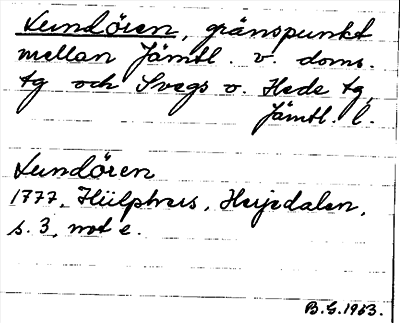 Lundören, gränspunkt
mellan Jämtl. v. doms.
tg och Svegs o. Hede tg,
Jämtl. l.
Lundören
1777, Hülphers, Herjedalen,
s. 3, not e.
B.G. 1963.